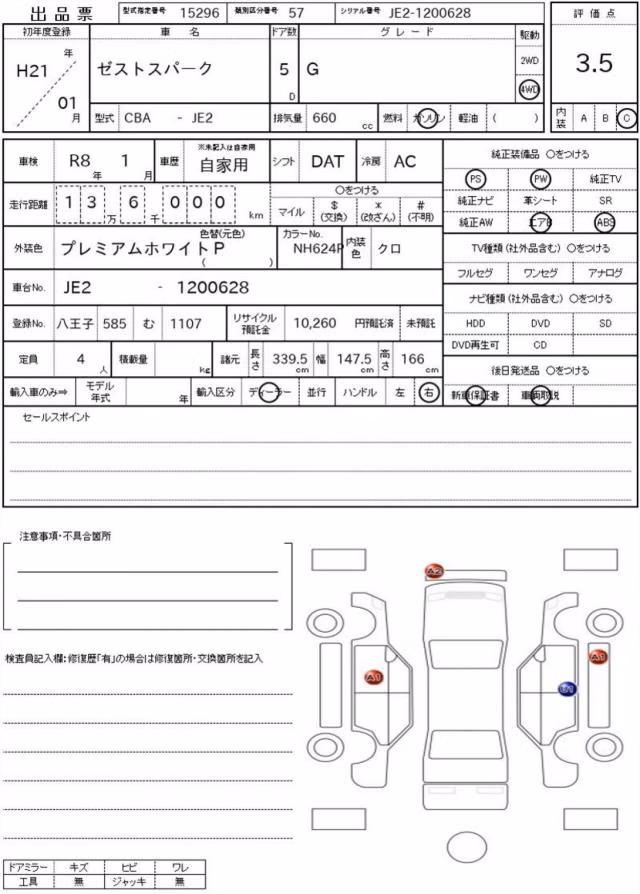 出品票 型式指定番号 15296 類別区分番号 57 シリアル番号 JE2-1200628
評価点
3.5
初年度登録 車名 ドア数 グレード 駆動
H21 年 01 月
ゼストスパーク 5 D G
2WD
4WD
型式 CBA - JE2 排気量 660 cc 燃料 ガソリン 軽油 ( )
内装 A B C
車検 R8 年 1 月 車歴 ※未記入は自家用 自家用 シフト DAT 冷房 AC
純正装備品 〇をつける
PS PW 純正TV
純正ナビ 革シート SR
純正AW エアB ABS
走行距離 1 3 万 6 千 0 0 0 km
〇をつける
マイル $(交換) *(改ざん) #(不明)
TV種類(社外品含む) 〇をつける
フルセグ ワンセグ アナログ
外装色 色替(元色) プレミアムホワイトP ( ) カラーNo. NH624P 内装色 クロ
車台No. JE2 - 1200628
ナビ種類(社外品含む) 〇をつける
HDD DVD SD
DVD再生可 CD
登録No. 八王子 585 む 1107 リサイクル預託金 10,260 円預託済 未預託
定員 4 人 積載量 kg 諸元 長さ 339.5 cm 幅 147.5 cm 高さ 166 cm
後日発送品 〇をつける
新車保証書 車両取説
輸入車のみ⇒ モデル年式 年 輸入区分 ディーラー 並行 ハンドル 左 右
セールスポイント
注意事項・不具合箇所
検査員記入欄:修復歴「有」の場合は修復箇所・交換箇所を記入
A2
A1
A1
U1
ドアミラー キズ ヒビ ワレ
工具 無 ジャッキ 無